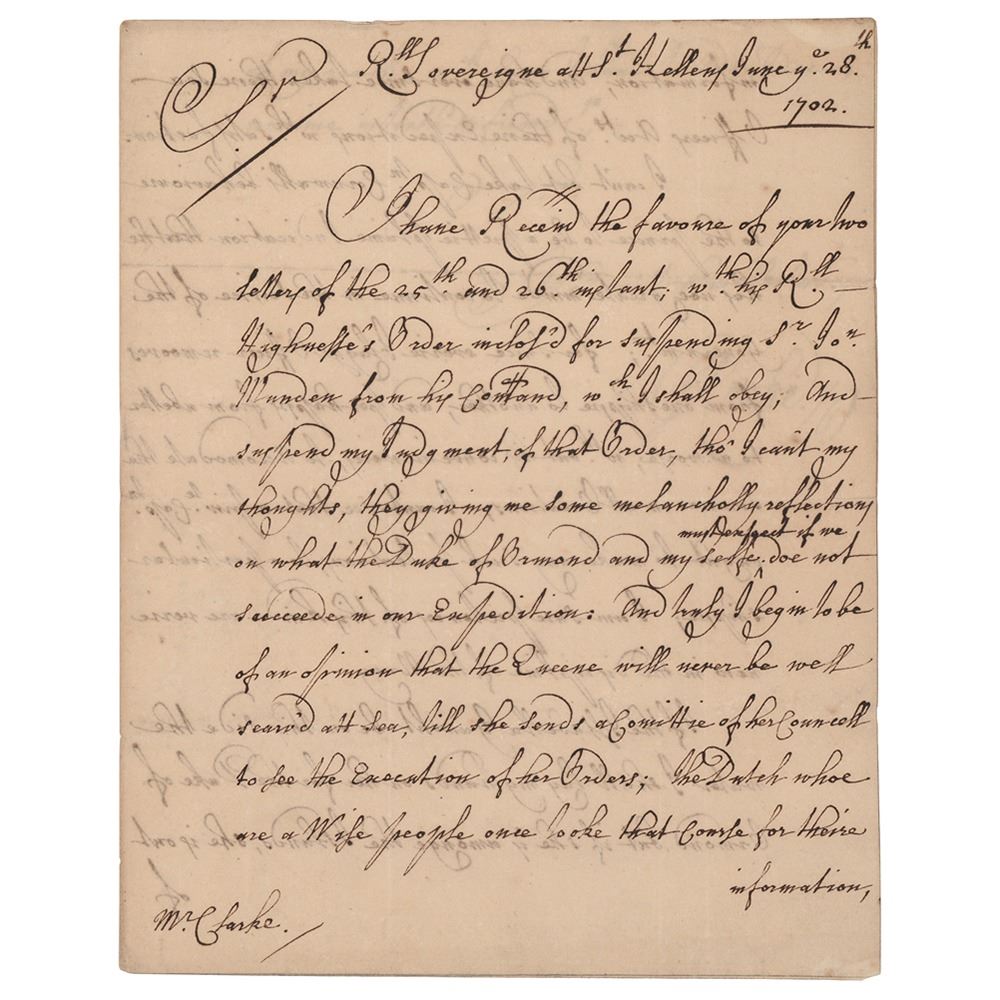 R.ll Sovereigne att St. Hellens June ye. 28.th
1702.
Sr
I have Receiv'd the favoure of your two
letters of the 25th and 26.th instant; wth. his R.ll
Highnesse's Order inclos'd for suspending Sr. Jon.
Munden from his Comand, wch. I shall obey; And
suspend my Judgment, of that Order, tho' I can't my
thoughts, they giving me some melancholly reflections
must expect if we
on what the Duke of Ormond and my selfe ^ doe not
succeede in our Expedition: And truly I begin to be
of an opinion that the Queene will never be well
searv'd att Sea, till she sends a Comittie of her Councell
to see the Execution of her Orders; the Dutch whoe
are a Wise people once tooke that Course for theire
information,
Mr. Clarke.